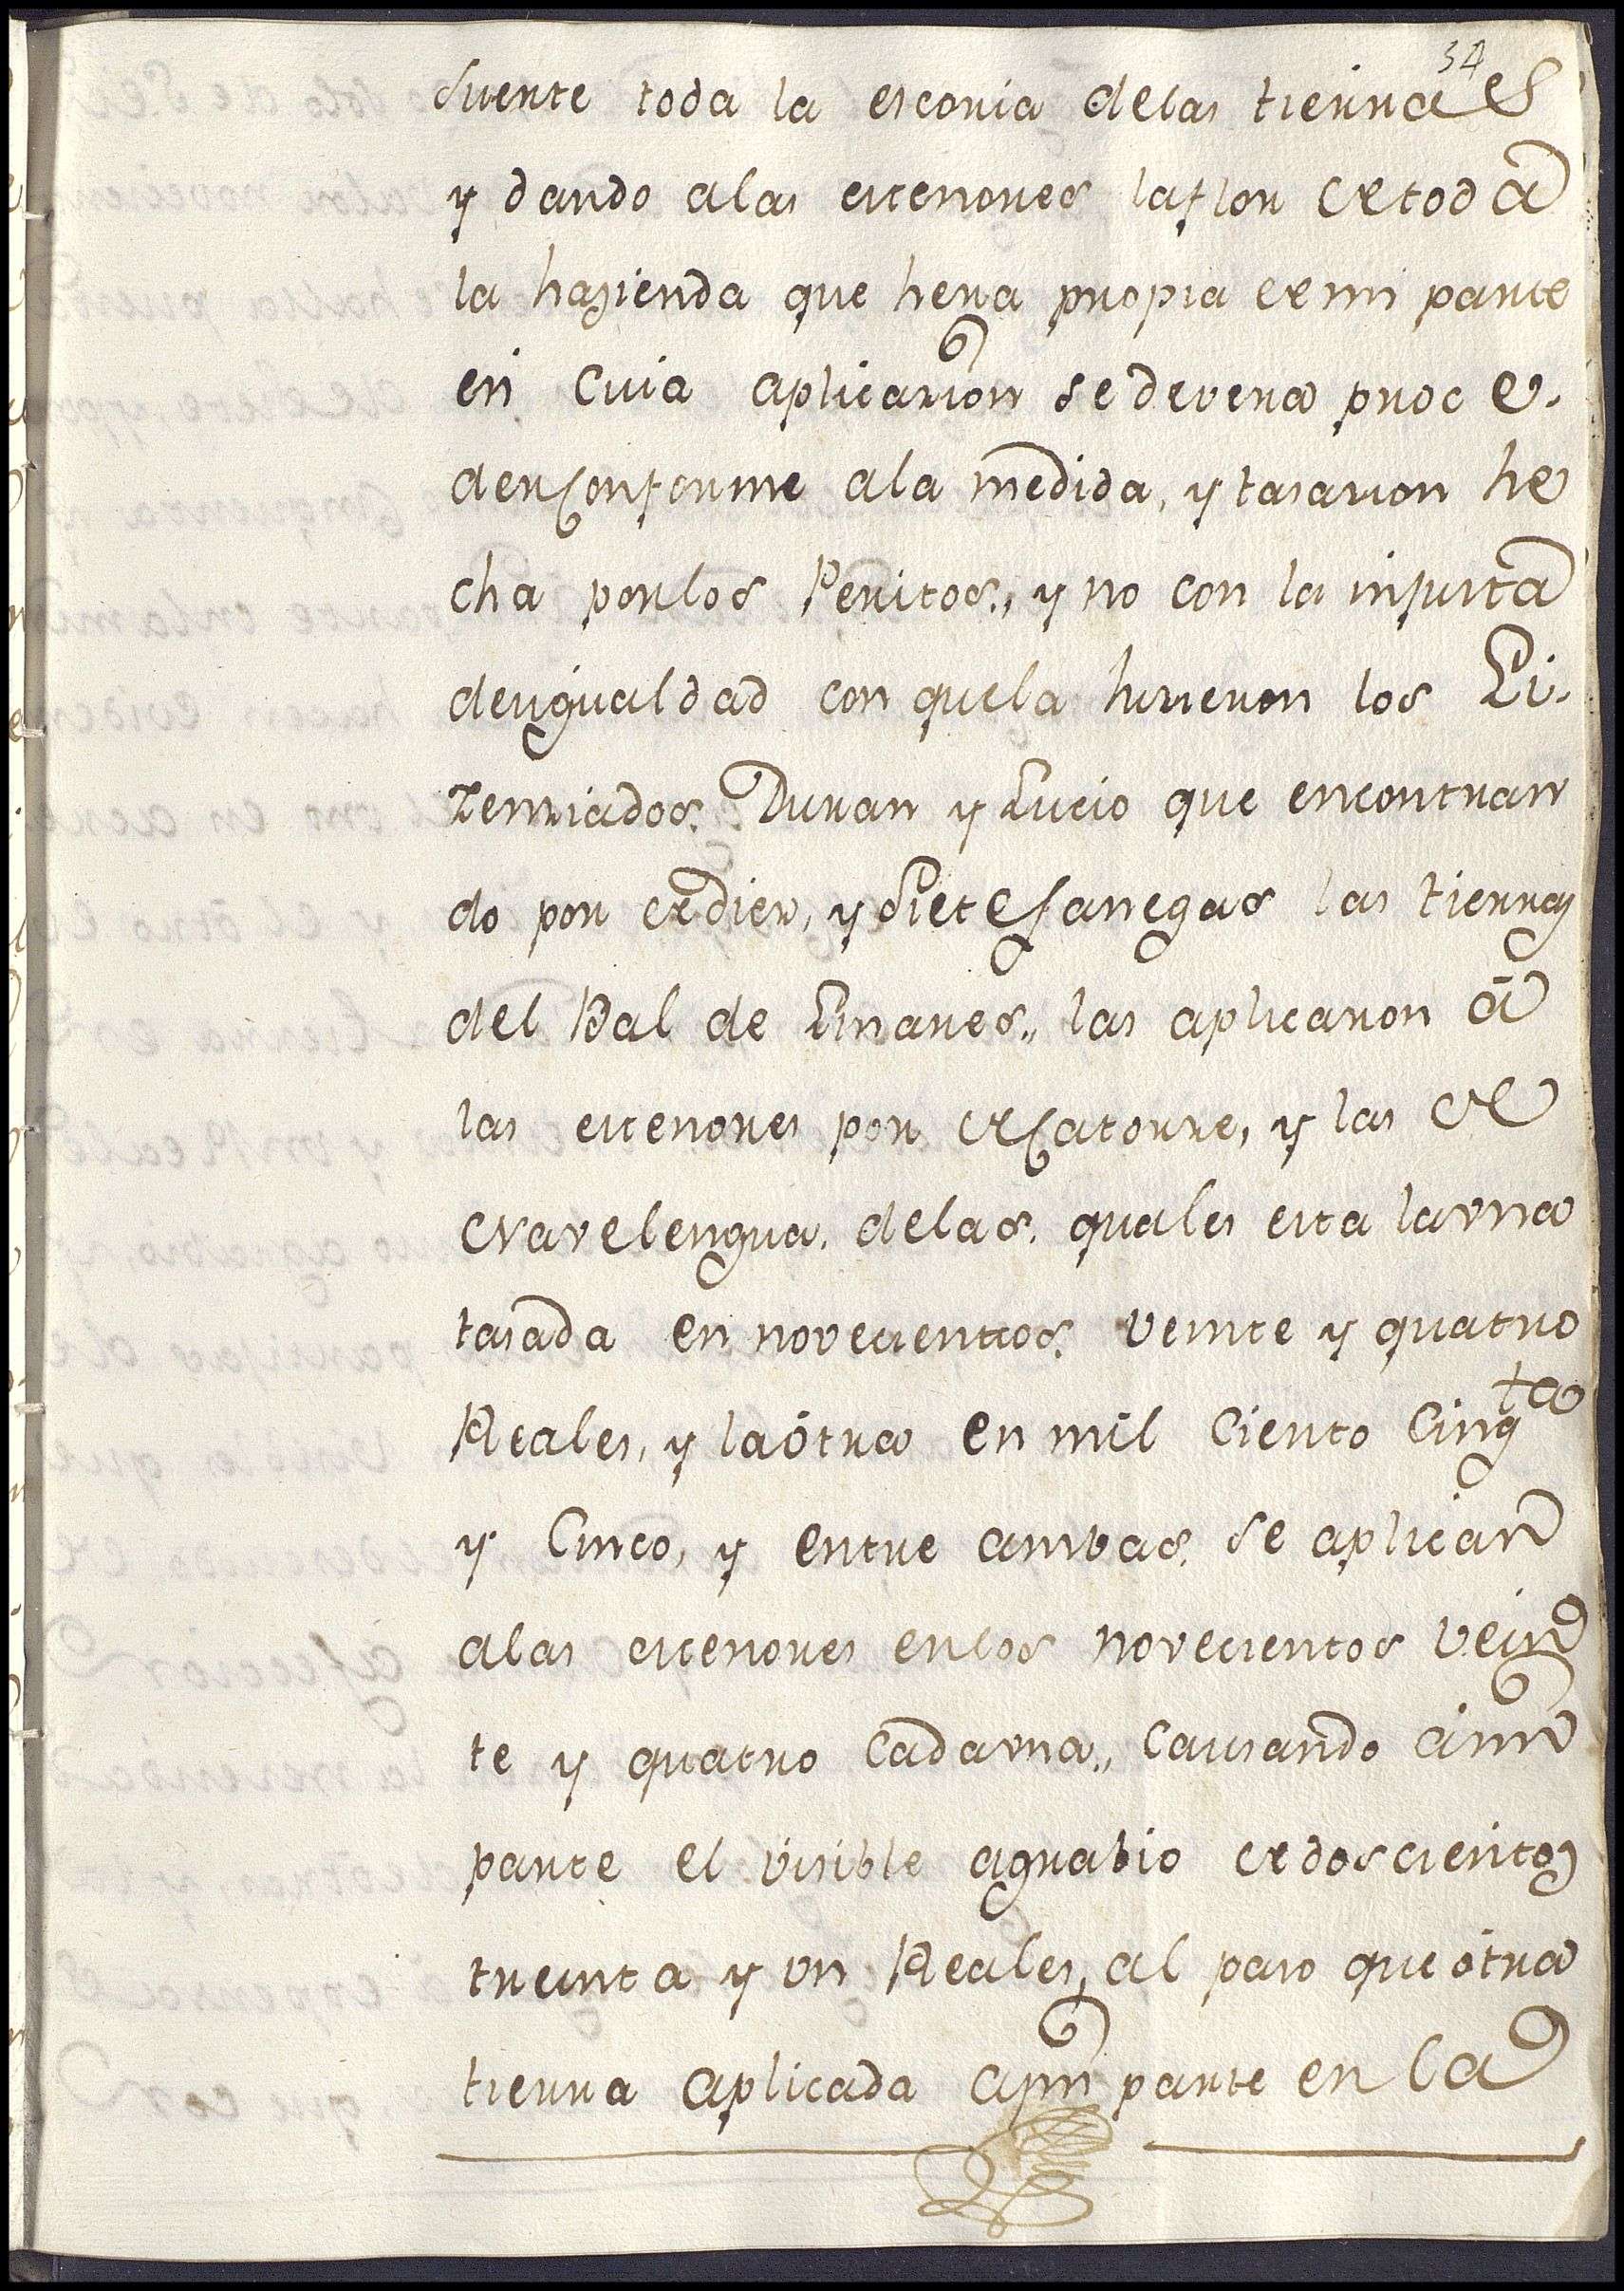 34
suerte toda la escoria delas tierras
y dando alas exteriores laflor de toda
la hazienda que hera propia de mi parte
en cuia aplicazion sedevera proce-
der conforme ala medida, y tasazion he
cha porlos Peritos, y no con la injusta
desigualdad con quela hizieron los Li-
zenziados Duran y Lucio que encontran
do por de diez, y siete fanegas las tierras
del Bal de Linares, las aplicaron á
las exteriores por de catorze, y las de
Clavelengua, delas quales esta launa
tasada en novecientos veinte y quatro
Reales, y laótra en mil ciento cinqta
y cinco, y entre ambas se aplican
alas exteriores enlos novecientos vein
te y quatro cadauna, causando ámi
parte el visible agrabio de doscientos
treinta y un Reales, al paso que ótra
tierra aplicada ámi parte en la